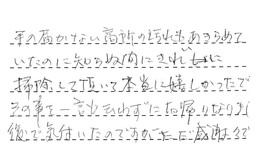 手の届かない高所の汚れもあきらめて
いたのに知らぬ間にきれいに
掃除して頂いて本当に嬉しかったで
その事を一言も言わずにお帰りなり
後で気付いたのですがただただ感謝で